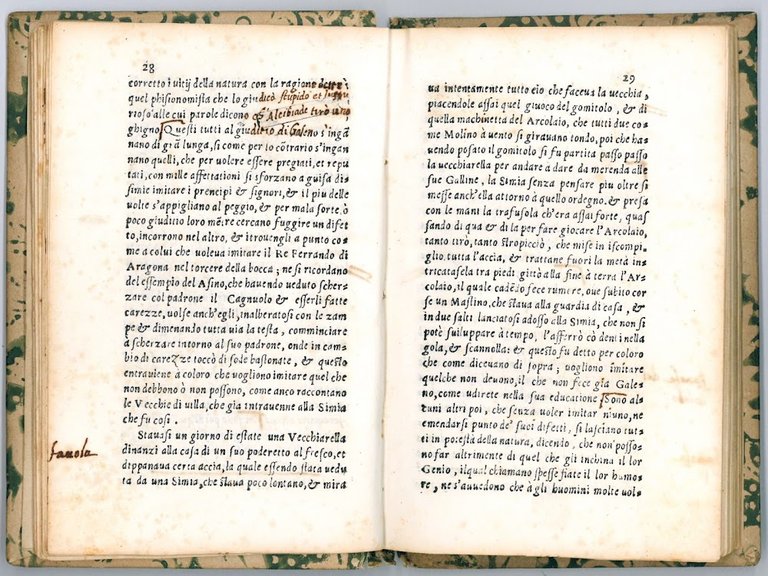 28
corretto i vitij della natura con la ragione
quel phisionomista che lo giudicò stupido et
rioso alle cui parole dicono Alcibiade tirò uno
ghigno Questi tutti al giuditio di Galeno s'ingã
nano di grã lunga, si come per lo cõtrario s'ingan
nano quelli, che per volere essere pregiati, et repu
tati, con mille affettationi si sforzano a guisa di
simie imitare i prencipi & signori, & il piu delle
volte s'appigliano al peggio, & per mala sorte, ò
poco giuditio loro mẽtre cercano fuggire un difet
to, incorrono nel altro, & itrovengli a punto co=
me a colui che voleva imitare il Re Ferrando di
Aragona nel torcere della bocca; ne si ricordano
del essempio del Asino, che havendo veduto scher=
zare col padrone il Cagnuolo & esserli fatte
carezze, volse anch'egli, inalberatosi con le zam
pe & dimenando tutta via la testa, comminciare
à scherzare intorno al suo padrone, onde in cam=
bio di carezze toccò di sode bastonate, & questo
entraviene à coloro che vogliono imitare quel che
non debbono ò non possono, come anco raccontano
le Vecchie di villa, che gia intravenne alla Simia
che fu cosi.
Stavasi un giorno di estate una Vecchiarella
favola
dinanzi alla casa di un suo poderetto al fresco, et
dippanava certa accia, la quale essendo stata vedu
ta da una Simia, che stava poco lontano, & mira
29
va intentamente tutto ciò che faceva la vecchia,
piacendole assai quel giuoco del gomitolo, & di
quella machinetta del Arcolaio, che tutti due co=
me Molino à vento si giravano tondo, poi che ha=
vendo posato il gomitolo si fu partita passo passo
la vecchiarella per andare a dare da merenda alle
sue Galline, la Simia senza pensare piu oltre si
messe anch'ella attorno à quello ordegno, & presa
con le mani la trafusola ch'era assai forte, quas
sando di qua & di la per fare giocare l'Arcolaio,
tanto tirò, tanto stropicciò, che mise in iscompi=
glio tutta l'accia, & trattane fuori la metà in=
tricatasela tra piedi gittò alla fine à terra l'Ar=
colaio, il quale cadẽdo fece rumore, ove subito cor
se un Mastino, che stava alla guardia di casa, &
in due salti lanciatosi adosso alla Simia, che non si
potè sviluppare à tempo, l'afferrò cò denti nella
gola, & scannolla; & questo fu detto per coloro
che come dicevano di sopra; vogliono imitare
quelche non devono, il che non fece gia Gale=
no, come udirete nella sua educatione Sono al=
cuni altri poi, che senza voler imitar n'uno, ne
emendarsi punto de' suoi difetti, si lasciano tut=
ti in potestà della natura, dicendo, che non posso=
no far altrimente di quel che gli inchina il lor
Genio, il qual chiamano spesse fiate il lor humo=
re, ne s'avvedono che à gli huomini molte vol=